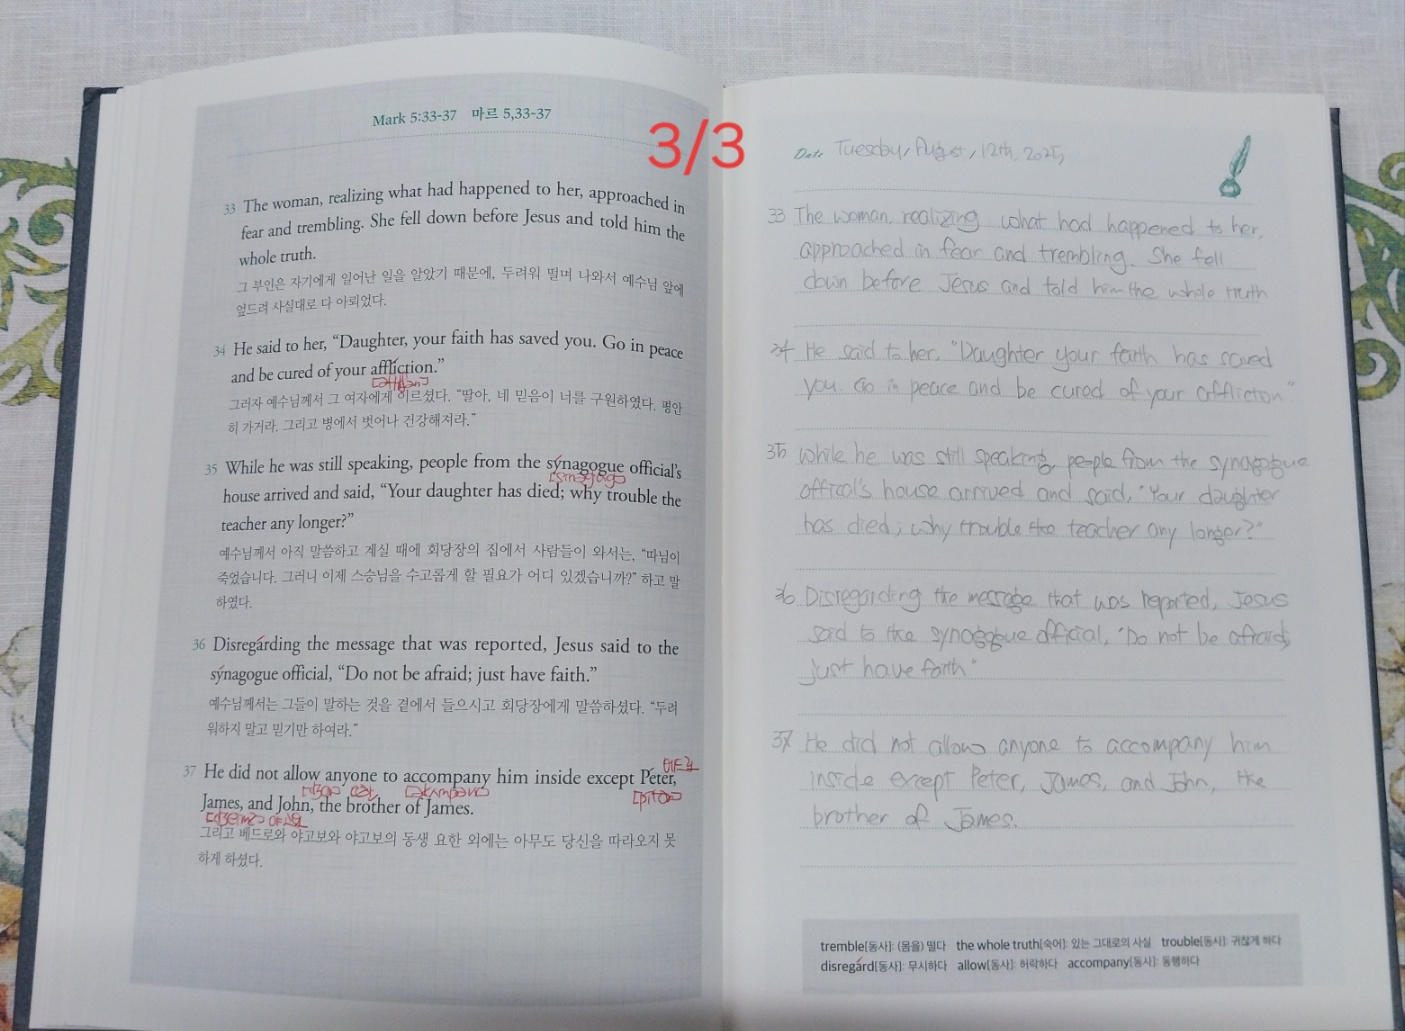 Mark 5:33-37 마르 5,33-37
3/3
33 The woman, realizing what had happened to her, approached in
fear and trembling. She fell down before Jesus and told him the
whole truth.
그 부인은 자기에게 일어난 일을 알았기 때문에, 두려워 떨며 나와서 예수님 앞에
엎드려 사실대로 다 아뢰었다.
34 He said to her, “Daughter, your faith has saved you. Go in peace
and be cured of your afflíction.”
그러자 예수님께서 그 여자에게 이르셨다. “딸아, 네 믿음이 너를 구원하였다. 평안
히 가거라. 그리고 병에서 벗어나 건강해져라.”
35 While he was still speaking, people from the sýnagogue official’s
house arrived and said, “Your daughter has died; why trouble the
teacher any longer?”
예수님께서 아직 말씀하고 계실 때에 회당장의 집에서 사람들이 와서는, “따님이
죽었습니다. 그러니 이제 스승님을 수고롭게 할 필요가 어디 있겠습니까?” 하고 말
하였다.
36 Disregárding the message that was reported, Jesus said to the
sýnagogue official, “Do not be afraid; just have faith.”
예수님께서는 그들이 말하는 것을 곁에서 들으시고 회당장에게 말씀하셨다. “두려
워하지 말고 믿기만 하여라.”
베드로
37 He did not allow anyone to accompany him inside except Péter,
James, and John, the brother of James.
야고보
그리고 베드로와 야고보와 야고보의 동생 요한 외에는 아무도 당신을 따라오지 못
하게 하셨다.
Date Tuesday, August, 12th, 2025,
33 The woman, realizing what had happened to her,
approached in fear and trembling. She fell
down before Jesus and told him the whole truth
34 He said to her, "Daughter your faith has saved
you. Go in peace and be cured of your affliction"
35 While he was still speaking, people from the synagogue
offical's house arrived and said, "Your daughter
has died; why trouble the teacher any longer?"
36 Disregarding the message that was reported, Jesus
said to the synagogue official, "Do not be afraid;
just have faith"
37 He did not allow anyone to accompany him
inside except Peter, James, and John, the
brother of James.
tremble[동사]: (몸을) 떨다 the whole truth[숙어]: 있는 그대로의 사실 trouble[동사]: 귀찮게 하다
disregárd[동사]: 무시하다 allow[동사]: 허락하다 accompany[동사]: 동행하다